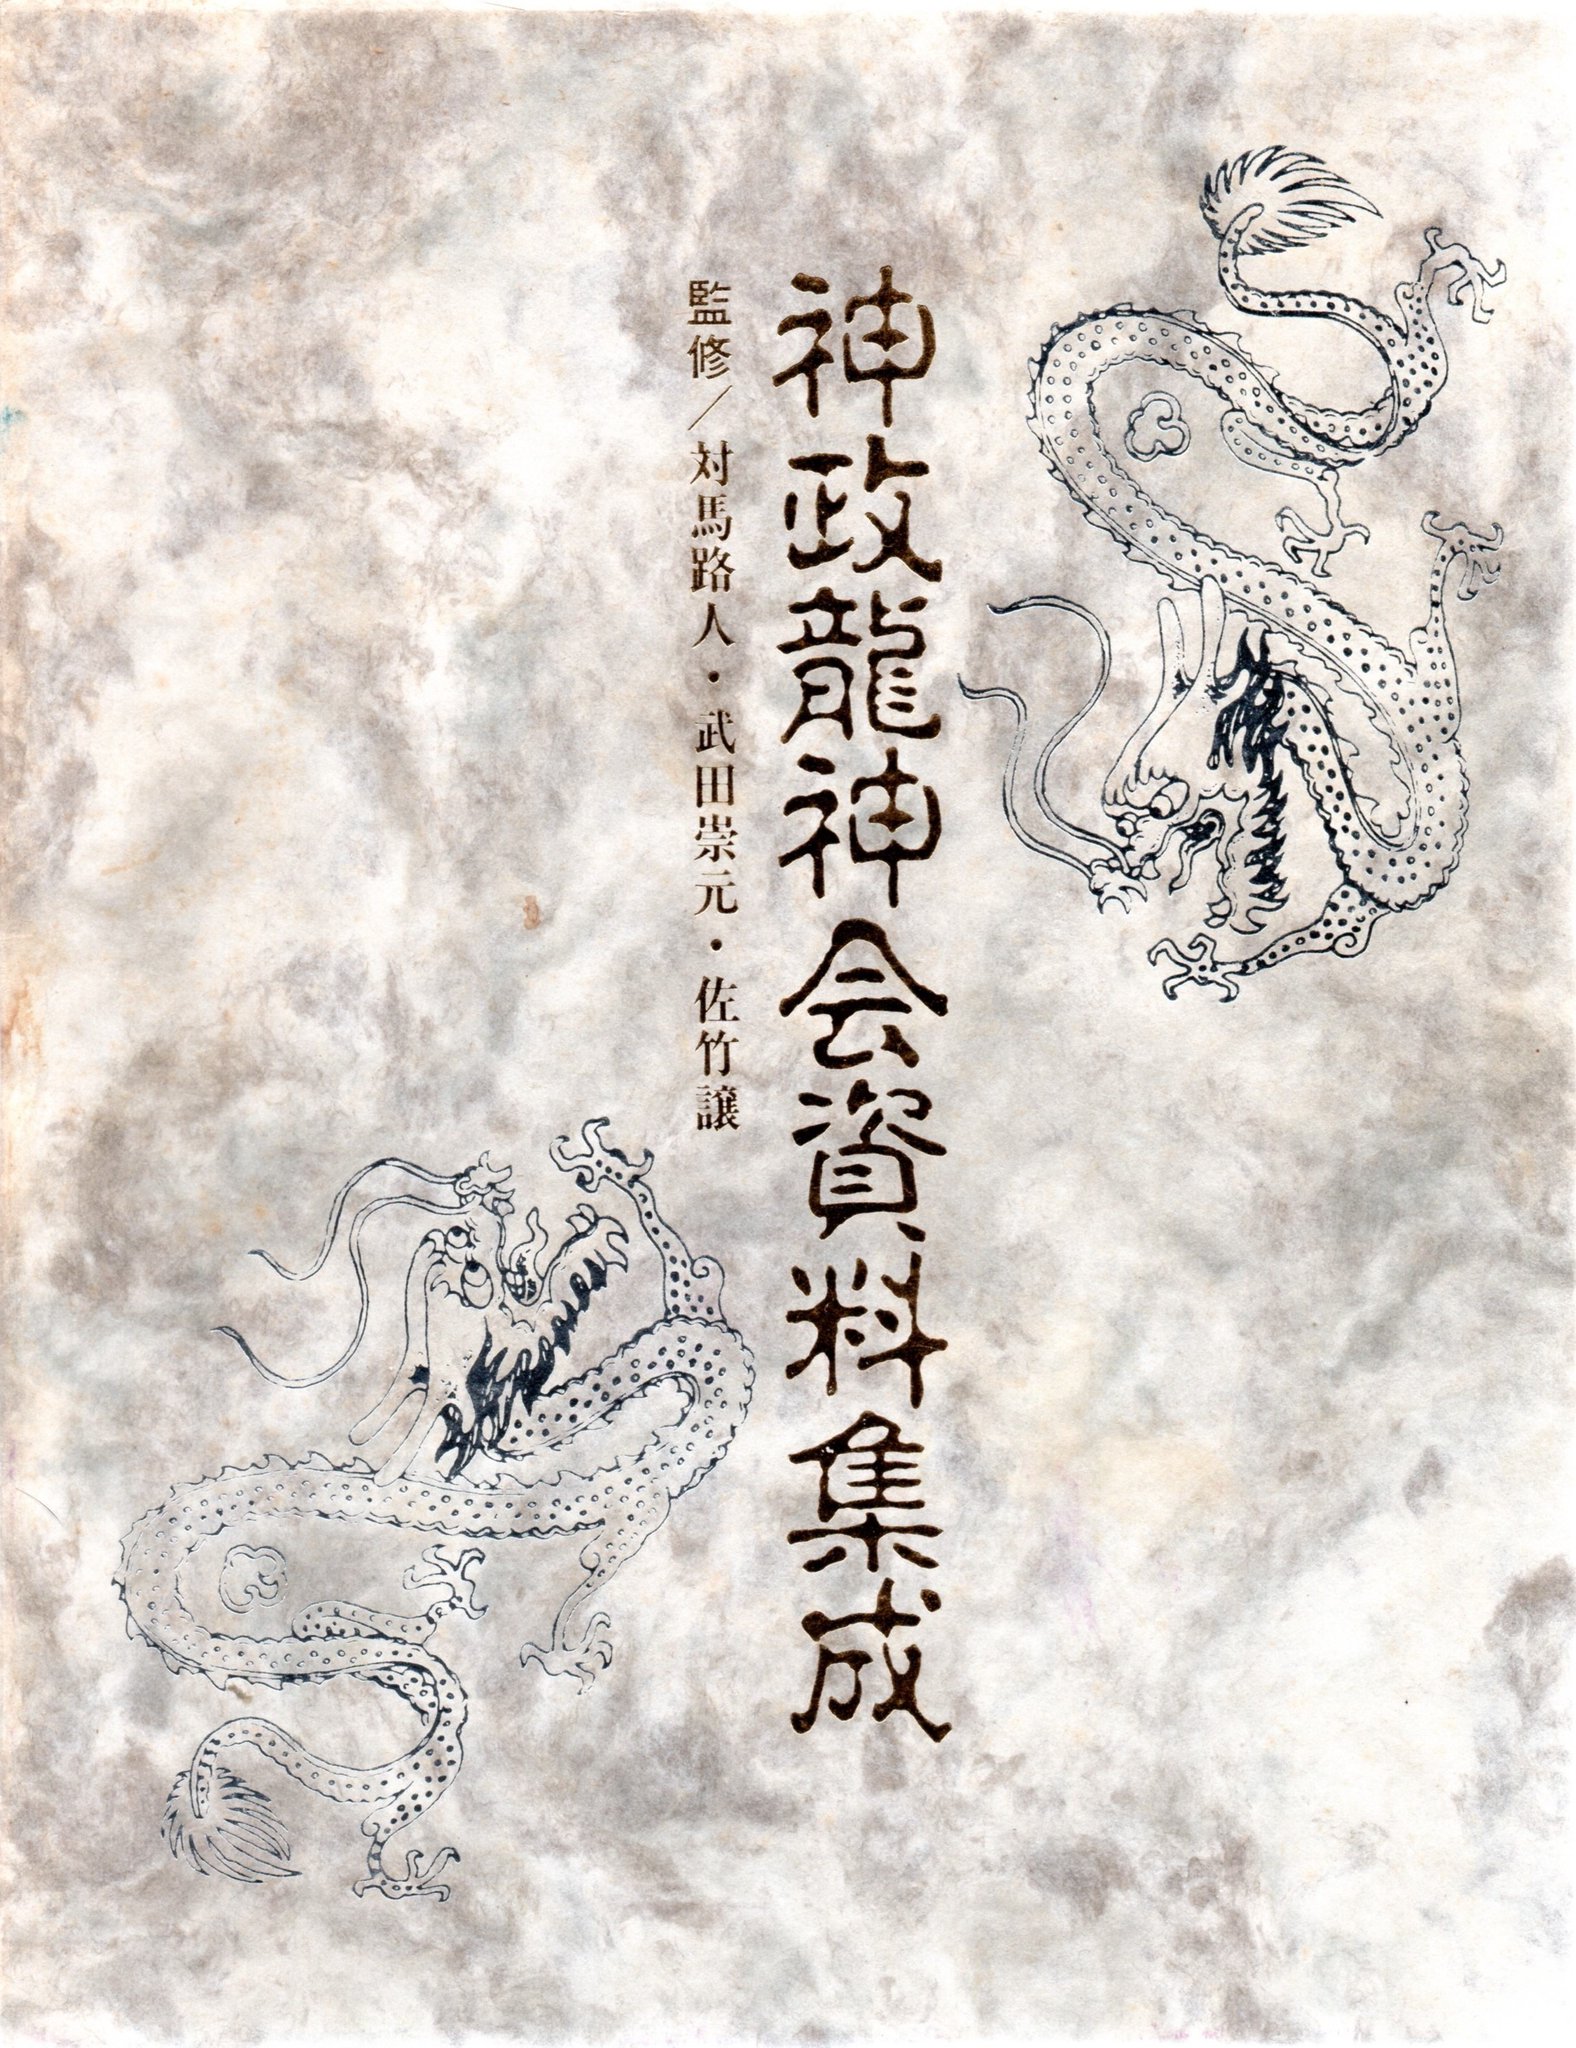 神政龍神会資料集成
監修／対馬路人・武田崇元・佐竹譲